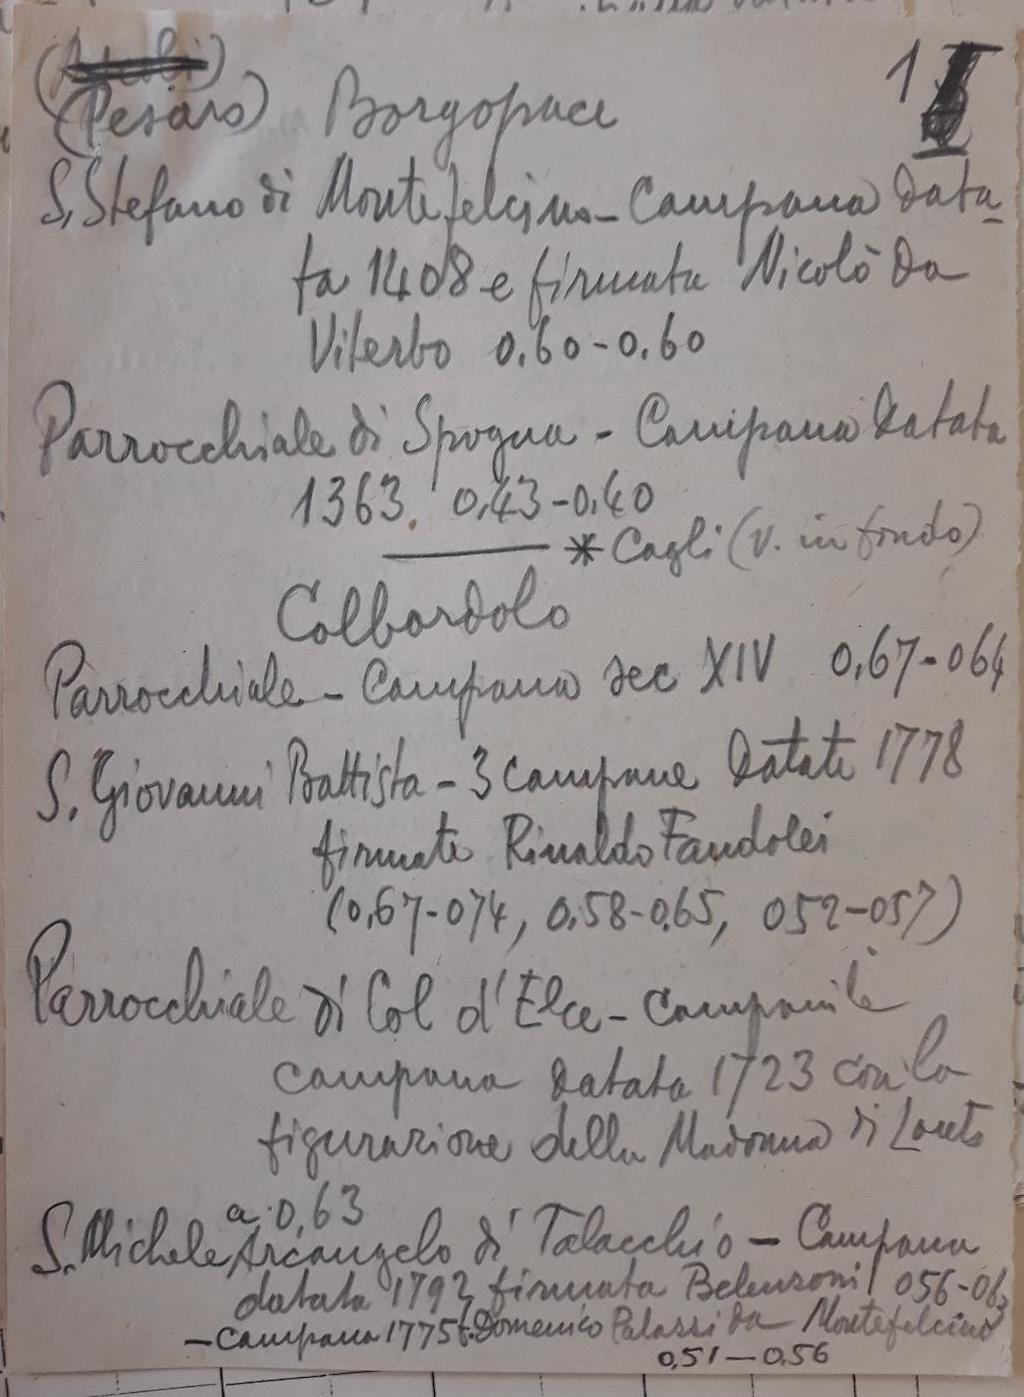 (Pesaro) Borgopace 1
S. Stefano di Montefelcino - Campana data-
ta 1408 e firmata Nicolò da
Viterbo 0.60-0.60
Parrocchiale di Spogna - Campana datata
1363. 0,43-0,40
* Cagli (v. in fondo)
Colbordolo
Parrocchiale - Campana sec XIV 0,67-064
S. Giovanni Battista - 3 campane datate 1778
firmate Rinaldo Fandolei
(0,67-074, 0,58-0,65, 052-057)
Parrocchiale di Col d'Elce - Campanile
campana datata 1723 con la
figurazione della Madonna di Loreto
a. 0,63
S. Michele Arcangelo di Talacchio - Campana
datata 1792 firmata Belenzoni 056-063
- Campana 1775 f. Domenico Palazzi da Montefelcino
0,51-0,56